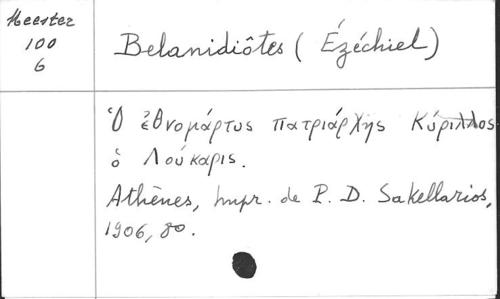 Meester
100
6
Belanidiôtes (Ézéchiel)
Ὁ ἐθνομάρτυς πατριάρχης Κύριλλος
ὁ Λούκαρις.
Athènes, Impr. de P. D. Sakellarios,
1906, 8o.